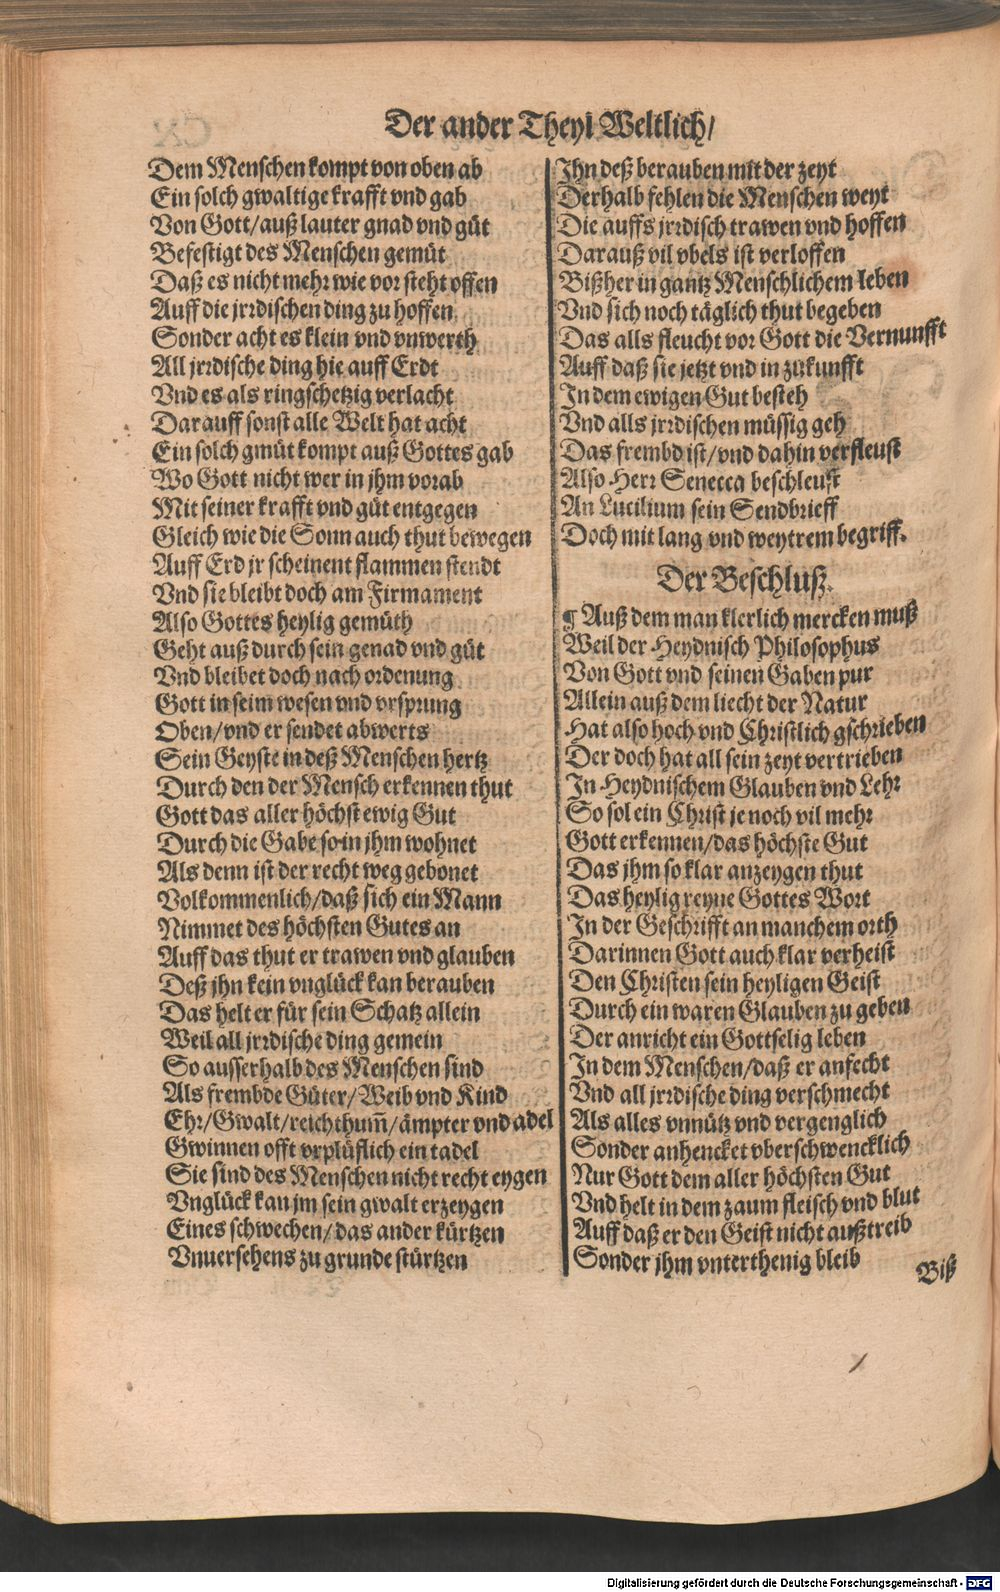 Der ander Theyl Weltlich/
Dem Menschen kompt von oben ab
Ein solch gwaltige krafft vnd gab
Von Gott/auß lauter gnad vnd güt
Befestigt des Menschen gemüt
Daß es nicht mehr wie vor steht offen
Auff die jrrdischen ding zu hoffen
Sonder acht es klein vnd vnwerth
All jrrdische ding hie auff Erdt
Vnd es als ringschetzig verlacht
Darauff sonst alle Welt hat acht
Ein solch gmüt kompt auß Gottes gab
Wo Gott nicht wer in jhm vorab
Mit seiner krafft vnd güt entgegen
Gleich wie die Sonn auch thut bewegen
Auff Erd jr scheinent flammen stendt
Vnd sie bleibt doch am Firmament
Also Gottes heylig gemüth
Geht auß durch sein genad vnd güt
Vnd bleibet doch nach ordenung
Gott in seim wesen vnd vrsprung
Oben/vnd er sendet abwerts
Sein Geyste in deß Menschen hertz
Durch den der Mensch erkennen thut
Gott das aller höchst ewig Gut
Durch die Gabe so in jhm wohnet
Als denn ist der recht weg gebonet
Volkommenlich/daß sich ein Mann
Nimmet des höchsten Gutes an
Auff das thut er trawen vnd glauben
Deß jhn kein vnglück kan berauben
Das helt er für sein Schatz allein
Weil all jrrdische ding gemein
So ausserhalb des Menschen sind
Als frembde Güter/Weib vnd Kind
Ehr/Gwalt/reichthum̃/ämpter vnd adel
Gwinnen offt vrplüflich ein tadel
Sie sind des Menschen nicht recht eygen
Vnglück kan jm sein gwalt erzeygen
Eines schwechen/das ander kürtzen
Vnuersehens zu grunde stürtzen
Jhn deß berauben mit der zeyt
Derhalb fehlen die Menschen weyt
Die auffs jrrdisch trawen vnd hoffen
Darauß vil vbels ist verloffen
Bißher in gantz Menschlichem leben
Vnd sich noch täglich thut begeben
Das alls fleucht vor Gott die Vernunfft
Auff daß sie jetzt vnd in zukunfft
In dem ewigen Gut besteh
Vnd alls jrrdischen müssig geh
Das frembd ist/vnd dahin verfleust
Also Herr Senecca beschleust
An Lucilium sein Sendbrieff
Doch mit lang vnd weytrem begriff.
Der Beschluß.
¶ Auß dem man klerlich mercken muß
Weil der Heydnisch Philosophus
Von Gott vnd seinen Gaben pur
Allein auß dem liecht der Natur
Hat also hoch vnd Christlich gschrieben
Der doch hat all sein zeyt vertrieben
In Heydnischem Glauben vnd Lehr
So sol ein Christ je noch vil mehr
Gott erkennen/das höchste Gut
Das jhm so klar anzeygen thut
Das heylig reyne Gottes Wort
In der Geschrifft an manchem orth
Darinnen Gott auch klar verheist
Den Christen sein heyligen Geist
Durch ein waren Glauben zu geben
Der anricht ein Gottselig leben
In dem Menschen/daß er anfecht
Vnd all jrrdische ding verschmecht
Als alles vnnütz vnd vergenglich
Sonder anhencket vberschwencklich
Nur Gott dem aller höchsten Gut
Vnd helt in dem zaum fleisch vnd blut
Auff daß er den Geist nicht außtreib
Sonder jhm vnterthenig bleib
Biß
Digitalisierung gefördert durch die Deutsche Forschungsgemeinschaft - DFG